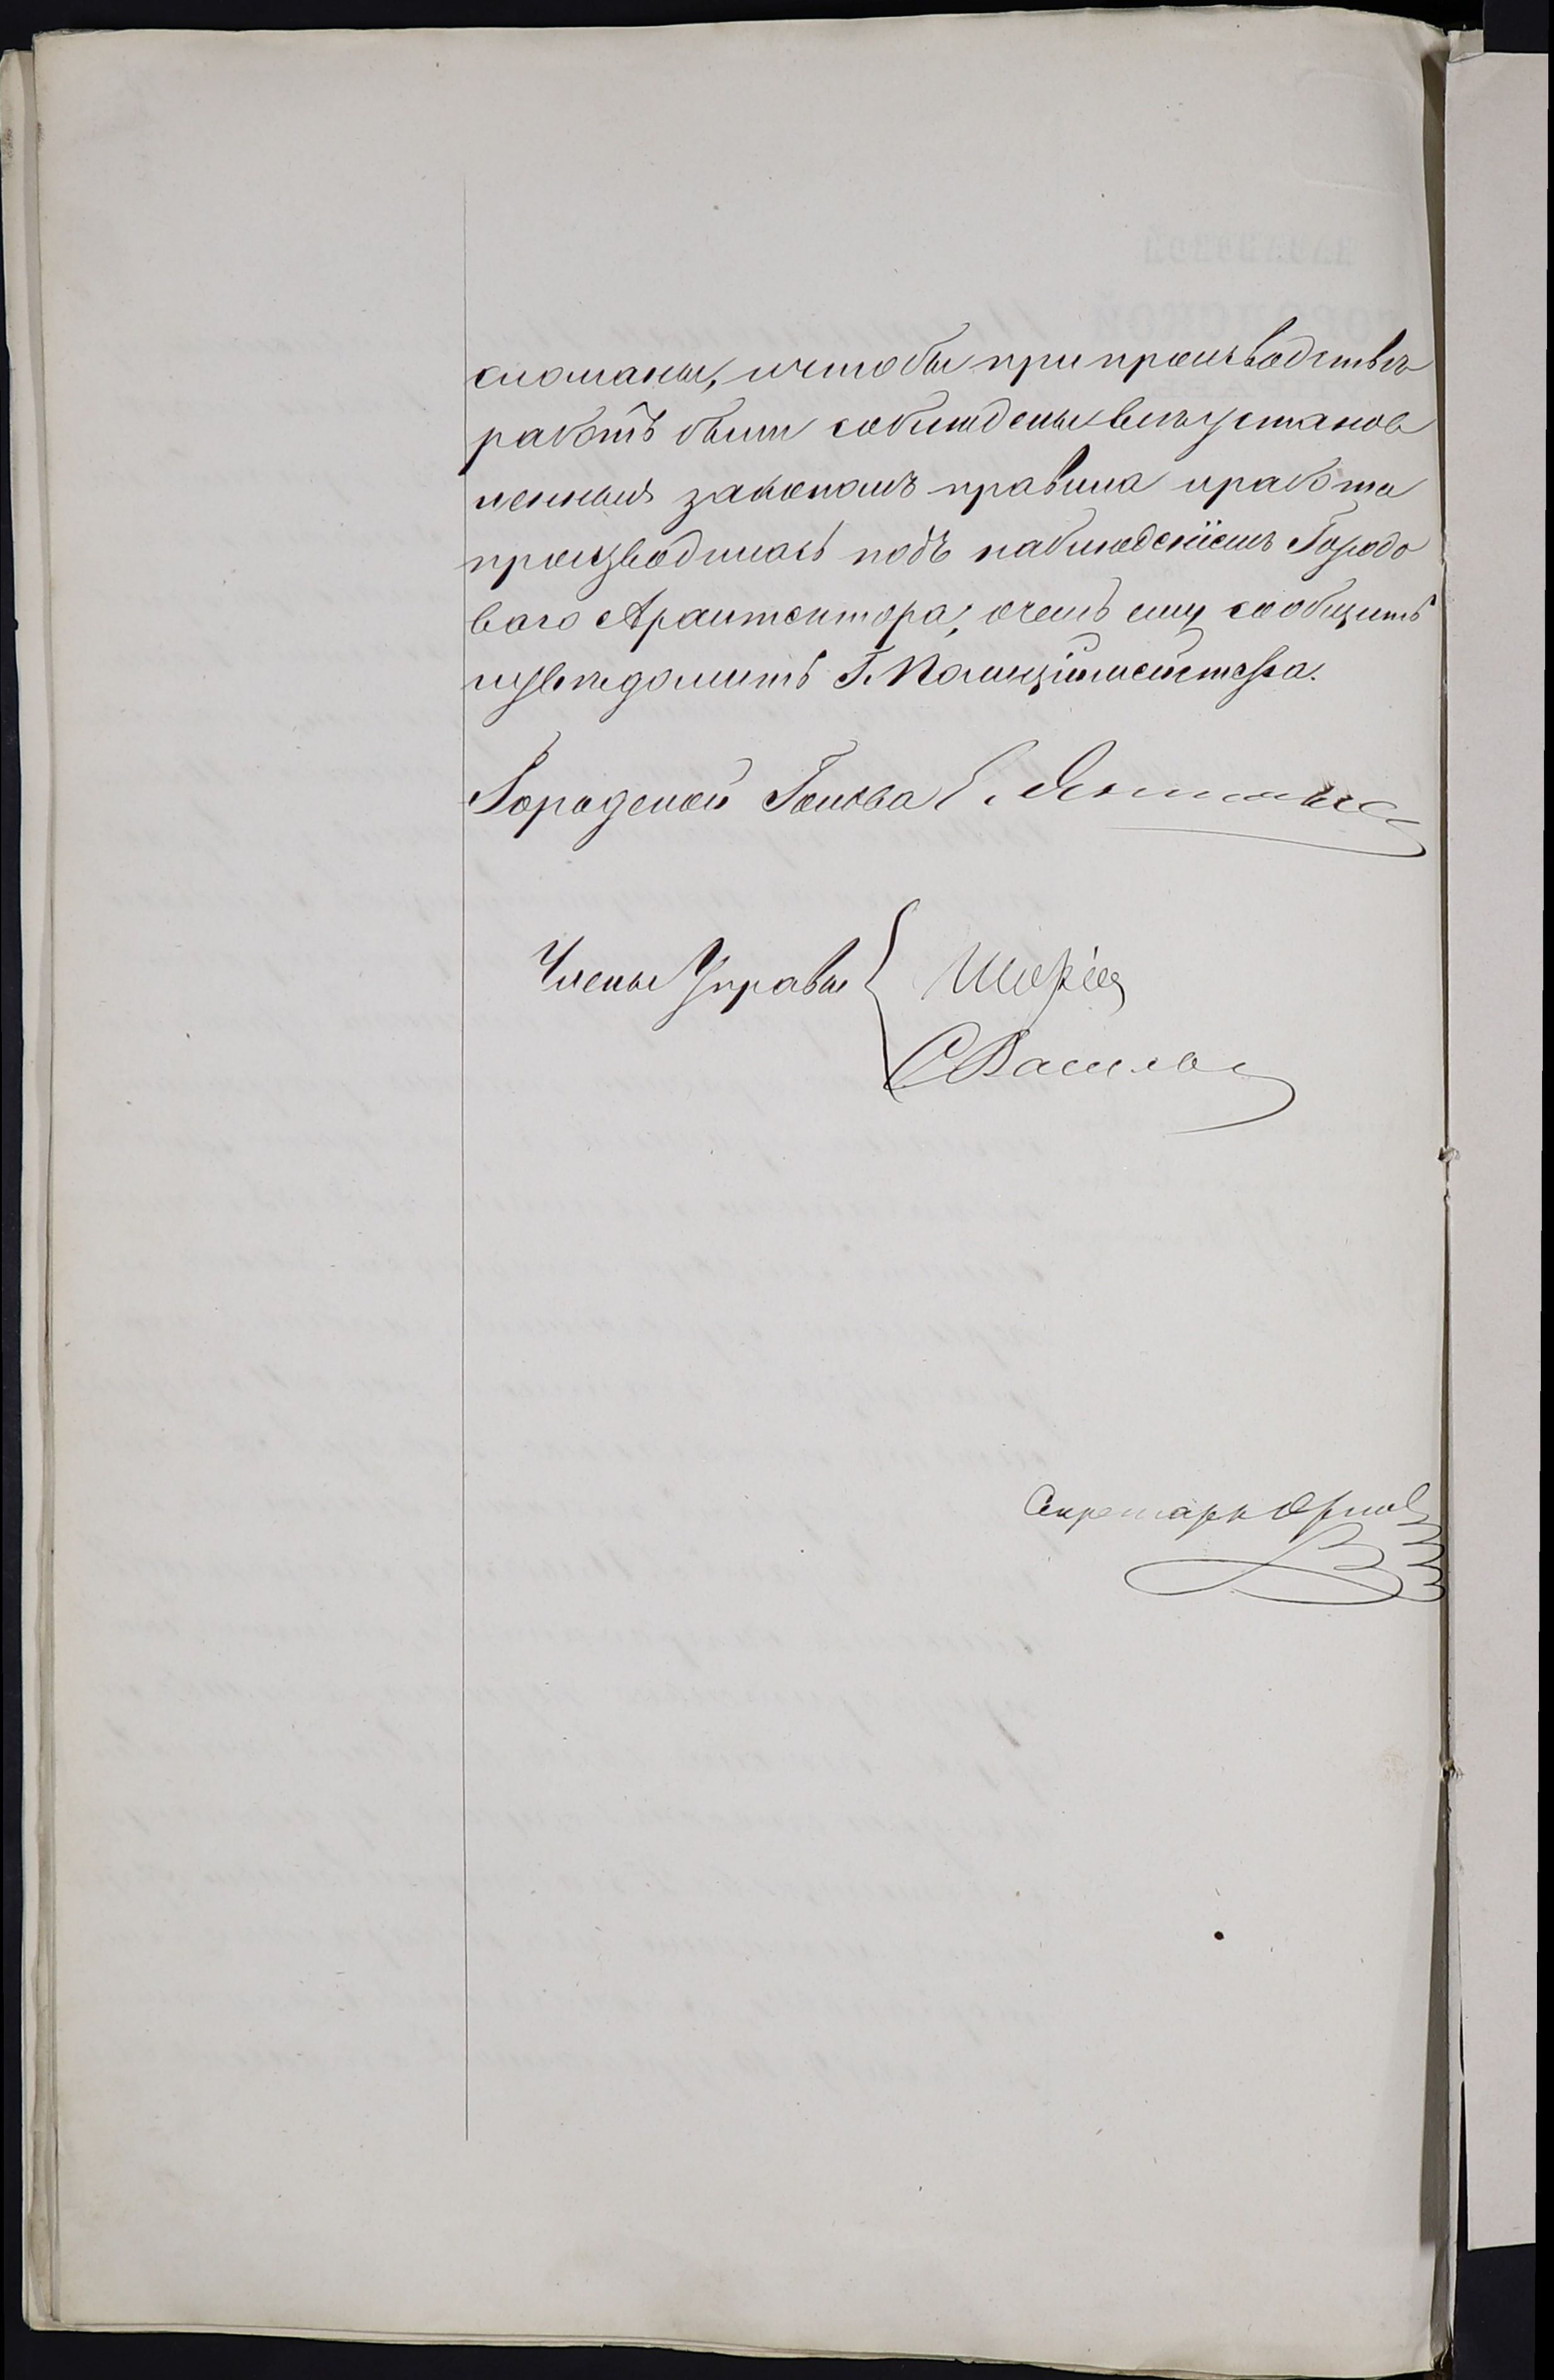 сломаны, и чтобы при производствѣ
работъ были соблюдены всѣ установ
ленныя закономъ правила и работа
производилась подъ наблюденіемъ Городо
ваго Архитектора, о чемъ ему сообщить
и увѣдомить Г. Полиціймейстера.
Городской Голова
Члены Управы
С Васильев
Секретарь Орлов